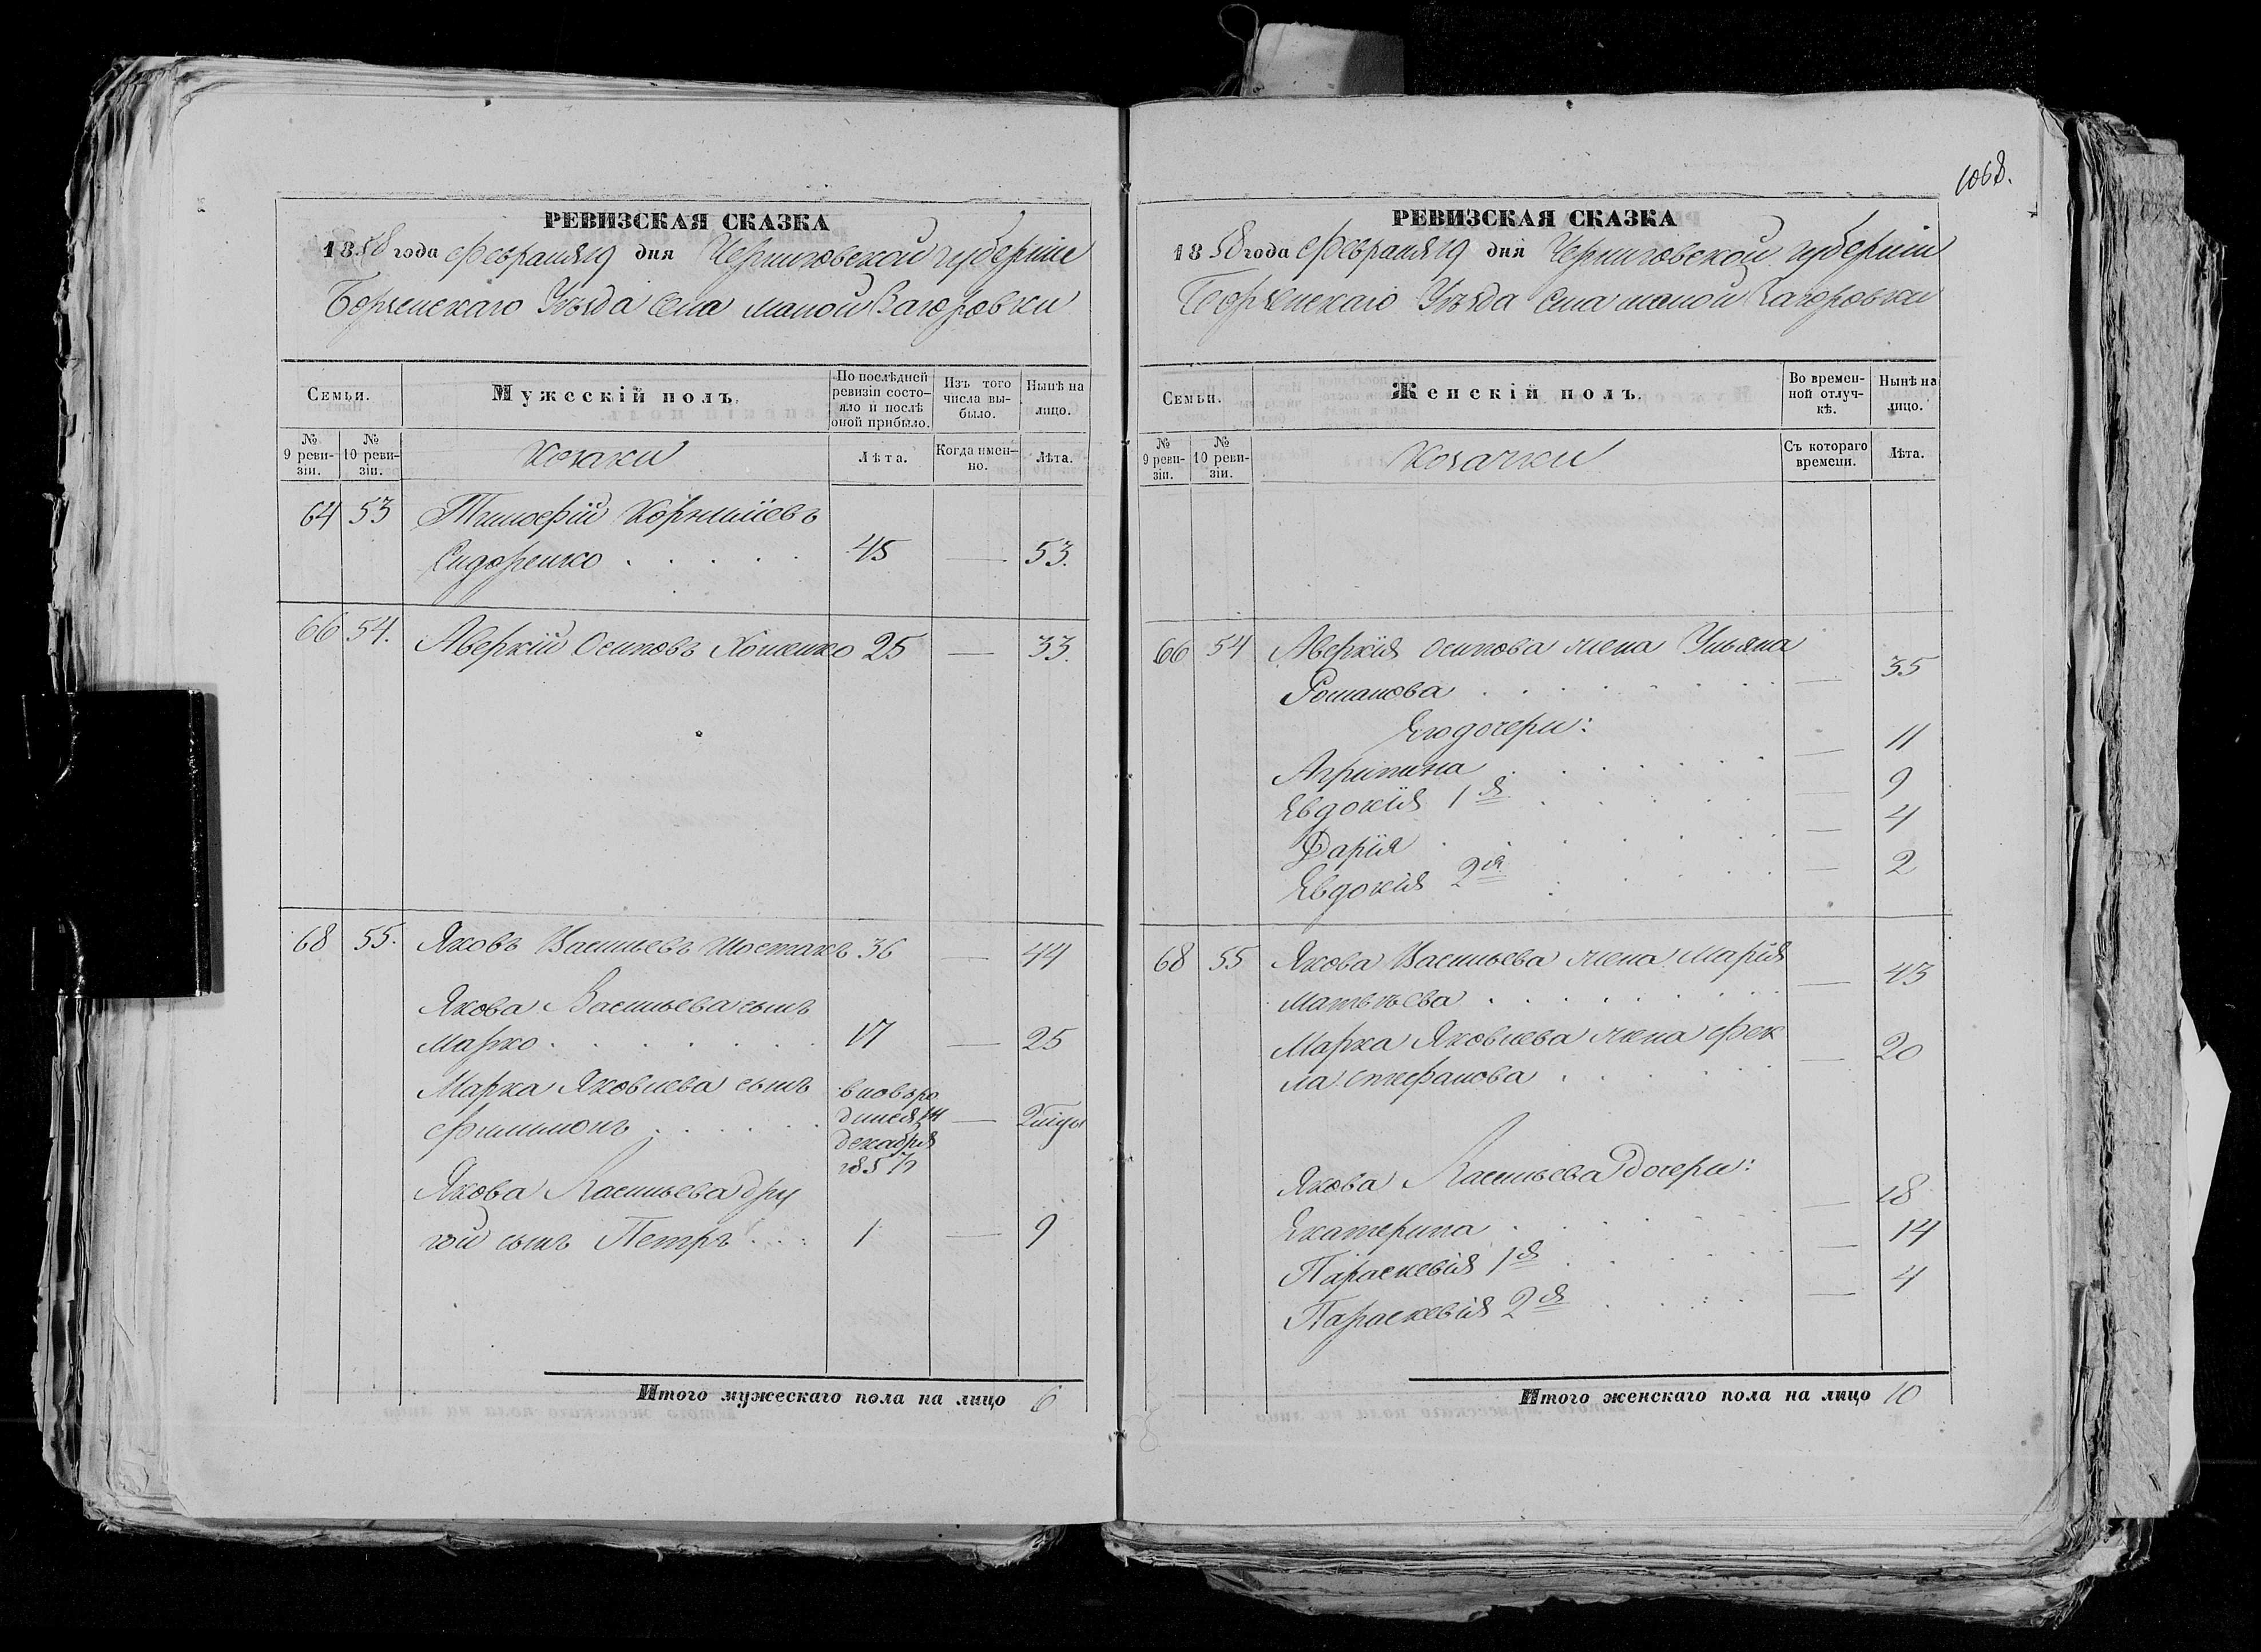 РЕВИЗСКАЯ СКАЗКА
1858 года Февраля 19 дня Черниговской губернии
Борзенскаго Уѣзда села малой Загоровки
Семьи.
Мужескій полъ.
По послѣдней ревизіи состояло и послѣ оной прибыло.
Изъ того числа выбыло.
Нынѣ на лицо.
№ 9 ревизіи.
№ 10 ревизіи.
Козаки
Лѣта.
Когда именно.
Лѣта.
64 53 Тимофій Корниіевъ
Сидоренко . . . . . 45 — 53.
66 54. Аверкій Осиповъ Хоменко 25 — 33.
68 55. Яковъ Васильевъ Шостакъ 36 — 44
Якова Васильева сынъ
Марко . . . . . . . 17 — 25
Марка Яковлева сынъ вновь ро
Филимонъ . . . . . . дился 14 —
декабря
185
Якова Васильева дру
гой сынъ Петръ . . . 1 — 9
Итого мужескаго пола на лицо 6
1068.
РЕВИЗСКАЯ СКАЗКА
1858 года Февраля 19 дня Черниговской губерніи
Борзенскаго Уѣзда села малой Загоровки
Семьи.
Женскій полъ.
Во временной отлучкѣ.
Нынѣ на лицо.
№ 9 ревизіи.
№ 10 ревизіи.
Козачки
Съ котораго времени.
Лѣта.
66 54 Аверкія Осипова жена Ульяна
Романова . . . . . . . . — 35
Его дочери:
Агрипина . . . . . . . — 11
Евдокія 1я . . . . . — 9
Дарія . . . . . . — 4
Евдокія 2я . . . . . — 2
68 55 Якова Васильева жена Марія
Матвѣева . . . . . . . . — 43
Марка Яковлева жена Фек
ла Стефанова . . . . . . — 20
Якова Васильева дочери:
Екатерина . . . . . . — 18
Параскевія 1я . . . . . — 14
Параскевія 2я . . . . — 4
Итого женскаго пола на лицо 10